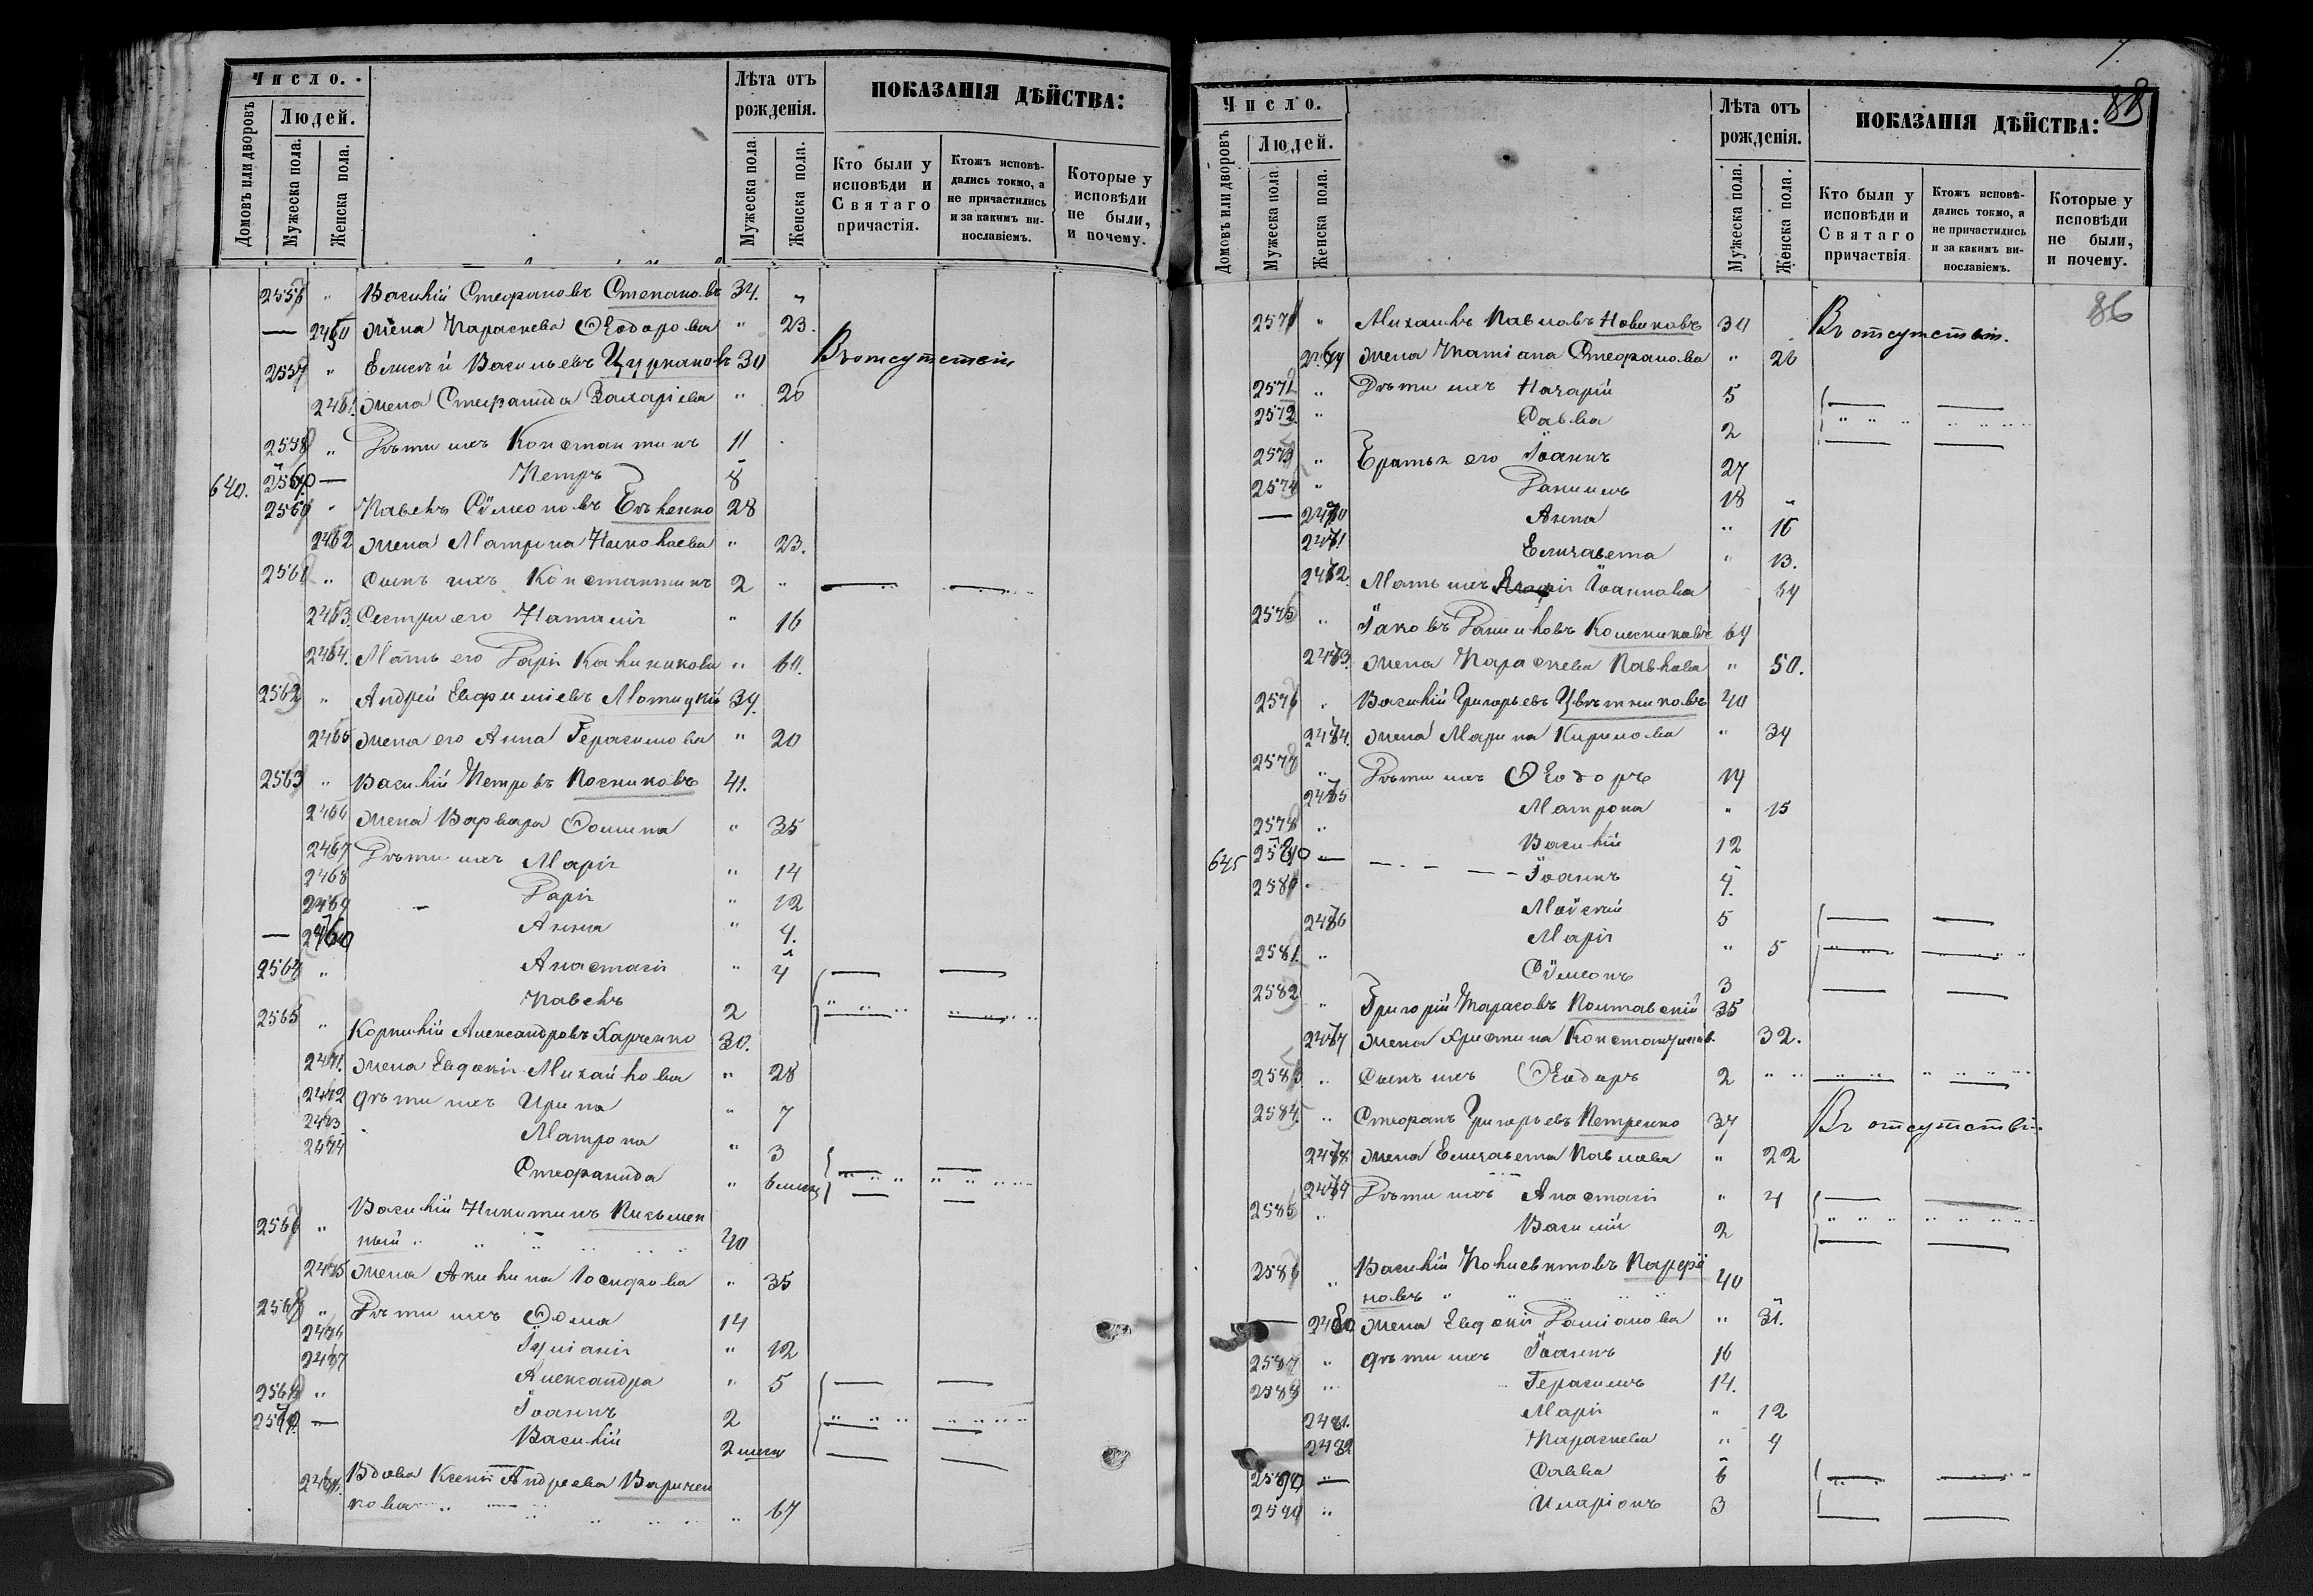 Число.
Людей.
Домовъ или дворовъ
Мужеска пола.
Женска пола.
Лѣта отъ рожденія.
Мужеска пола
Женска пола.
ПОКАЗАНІЯ ДѢЙСТВА:
Кто были у исповѣди и Святаго причастія.
Ктожъ исповѣ-
дались токмо, а
не причастились
и за какимъ ви-
нославіемъ.
Которые у исповѣди не были, и почему.
Василій Стефановъ Степановъ 34.
2450 жена Параскева Ѳеодорова " 23.
Елисѣй Васильевъ Цуркановъ 30 Въ отсутствіи
2451. жена Стефанида Захаріева " 26
Дѣти ихъ Константинъ 11
640. Петръ 8
Павелъ Сѵмеоновъ Бѣленко 28
2452 жена Матрона Николаева " 23.
2561 " Сынъ ихъ Константинъ 2
2453. Сестра его Наталія " 16
2454. Мать его Дарія Калиникова " 60.
2562 " Андрей Евфиміевъ Мотицкій 39.
2455 жена его Анна Герасимова " 20
2563 " Василій Петровъ Носиковъ 41.
2456 жена Варвара Ѳомина " 35
2457 Дѣти ихъ Марія " 14
2458 Дарія " 12
2459 Анна " 9.
2460 Анастасія " 4
2564 " Павелъ 2
2565 " Корнилій Александровъ Харченко 30.
жена Евдокія Михайлова " 28
дѣти ихъ Ирина " 7
Матрона " 3
Стефанида " 6 мѣсяц
2566 " Василій Никитинъ Письмен
ный 40
жена Акилина Іосифова " 35
2567 " Дѣти ихъ Ѳома 14
Іуліанія " 12
Александра " 5
2568 " Іоаннъ 2
Василій 2 мѣсяц
Вдова Ксенія Андреева Варичен
кова " 67
7.
88
86
Число.
Людей.
Домовъ или дворовъ
Мужеска пола
Женска пола.
Лѣта отъ рожденія.
Мужеска пола.
Женска пола.
ПОКАЗАНІЯ ДѢЙСТВА:
Кто были у исповѣди и Святаго причаствія
Ктожъ исповѣ-
дались токмо, а
не причастились
и за какимъ ви-
нославіемъ.
Которые у исповѣди не были, и почему.
Михаилъ Павловъ Новиковъ 30 Въ отсутствіи.
жена Татіана Стефанова " 26
2571 " Дѣти ихъ Назарій 5
2572. " Савва 2
2573 " Братья его Іоаннъ 27
2574 " Даніилъ 18
2470 Анна " 16
2471 Елизавета " 13.
2472. Мать ихъ Іоаннова 64
2575 " Іаковъ Даниловъ Колесниковъ 69
2473. жена Параскева Павлова " 50.
2576 " Василій Григорьевъ Цвѣтниковъ 40
2474. жена Марина Кирилова " 34
2577 " Дѣти ихъ Ѳеодоръ 19
2475 Матрона " 15
2578 " Василій 12
645 Іоаннъ 9.
2580 Моѵсей 5
2476 Марія " 5
2581. " Сѵмеонъ 3
2582 " Григорій Тарасовъ Полтавскій 35
2477 жена Христина Константинов. 32.
2583 " Сынъ ихъ Ѳеодоръ 2
2584. " Стефанъ Григорьевъ Петренко 37 Въ отсутствіи.
2478 жена Елизавета Павлова " 22
2479 Дѣти ихъ Анастасія " 4
2585 " Василій 2
2586 " Василій Поліевктовъ Парфі
новъ 40
2480 жена Евдокія Даміанова " 31.
2587 " дѣти ихъ Іоаннъ 16
2588 " Герасимъ 14.
2481. Марія " 12
2482 Параскева " 9
Савва 6
Иларіонъ 3